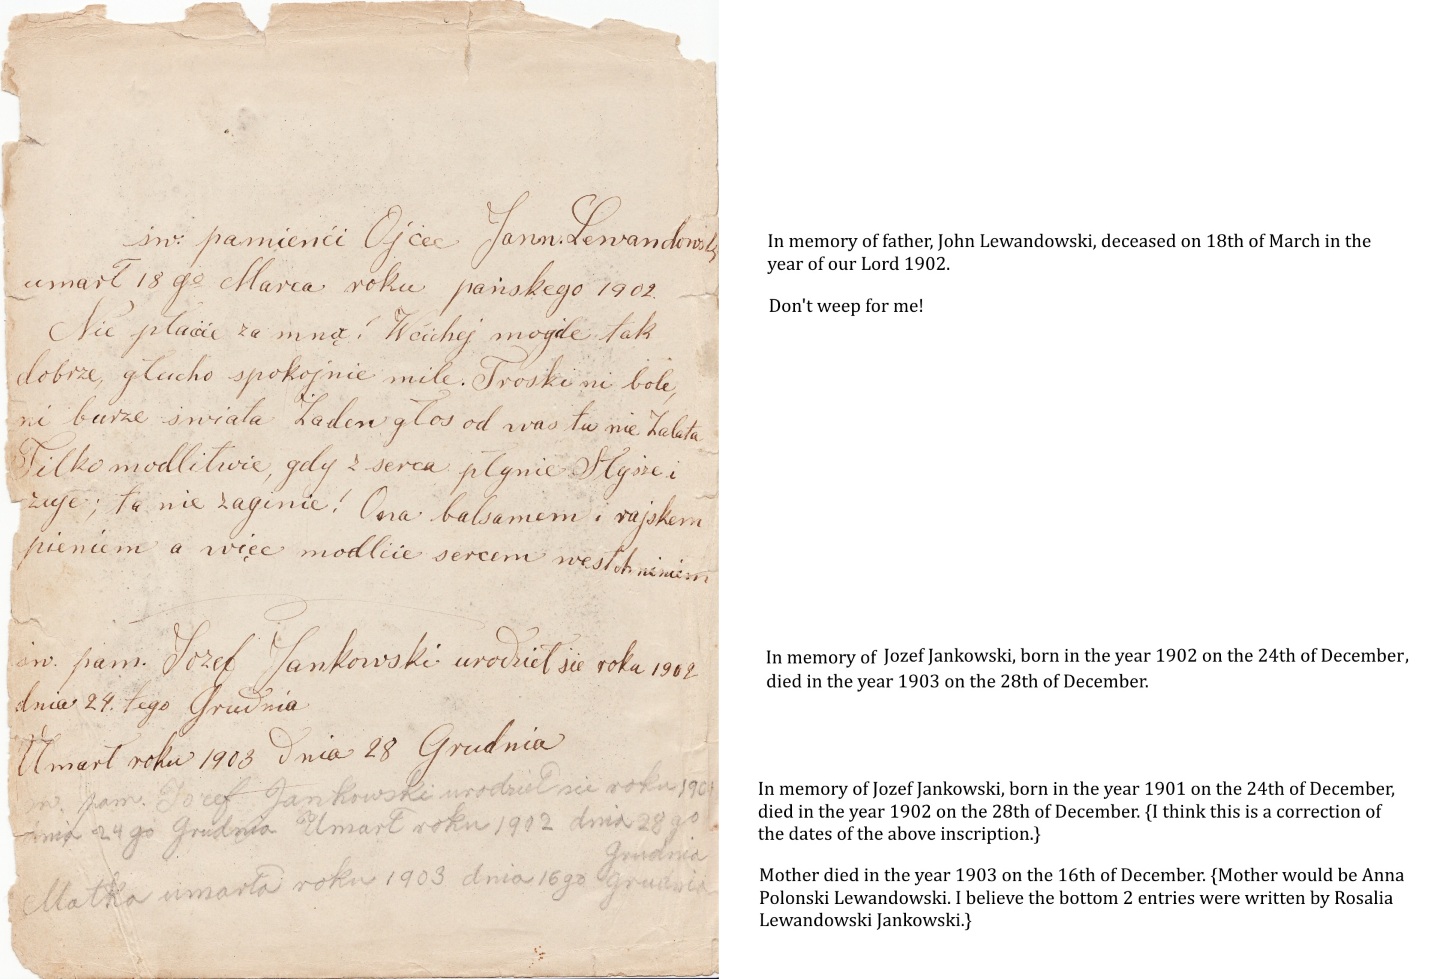 św. pamienci Ojcec Jann. Lewandowski
umarł 18 go Marca roku pańskego 1902.
Nie płaćcie za mną! W cichej mogile tak
dobrze, głucho spokojnie mile. Troski ni bole,
ni burze świata Żaden głos od was tu nie Zalata
Tilko modlitwie, gdy z serca płynie Słysze i
zuje; ta nie zaginie! Ona balsamem i rajskem
pieniem a więc modlcie sercem westchnieniem
św. pam. Jozef Jankowski urodzieł sie roku 1902
dnia 24. tego Grudnia
Umarł roku 1903 Dnia 28 Grudnia
św. pam. Jozef Jankowski urodzieł sie roku 1901
dnia 24 go Grudnia Umarł roku 1902 dnia 28 go
Grudnia
Matka umarła roku 1903 dnia 16 go Grudnia
In memory of father, John Lewandowski, deceased on 18th of March in the
year of our Lord 1902.
Don't weep for me!
In memory of Jozef Jankowski, born in the year 1902 on the 24th of December,
died in the year 1903 on the 28th of December.
In memory of Jozef Jankowski, born in the year 1901 on the 24th of December,
died in the year 1902 on the 28th of December. {I think this is a correction of
the dates of the above inscription.}
Mother died in the year 1903 on the 16th of December. {Mother would be Anna
Polonski Lewandowski. I believe the bottom 2 entries were written by Rosalia
Lewandowski Jankowski.}